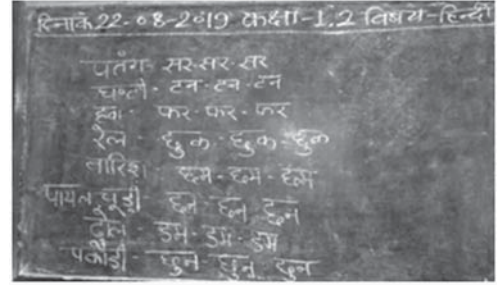 दिनांक 22-08-2019 कक्षा-1,2 विषय-हिन्दी
पतंग- सर-सर-सर
घण्टी- टन-टन-टन
हवा- फर-फर-फर
रेल- छुक-छुक-छुक
बारिश- छम-छम-छम
पायल, चूड़ी छन छन छन
ढोल- डम-डम-डम
पकौड़ी- छुन-छुन, छुन